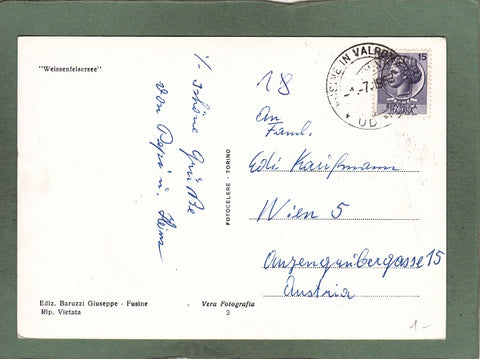 "Weissenfelsersee"
schöne Grüße
von Pepi u. Heinz
FOTOCELERE - TORINO
Ediz. Baruzzi Giuseppe - Fusine
Rip. Vietata
Vera Fotografia
3
FUSINE IN VALROMANA
UD
15
18
An
Faml.
Edi Kaufmann
Wien 5
Anzengrubergasse 15
Austria
1.-